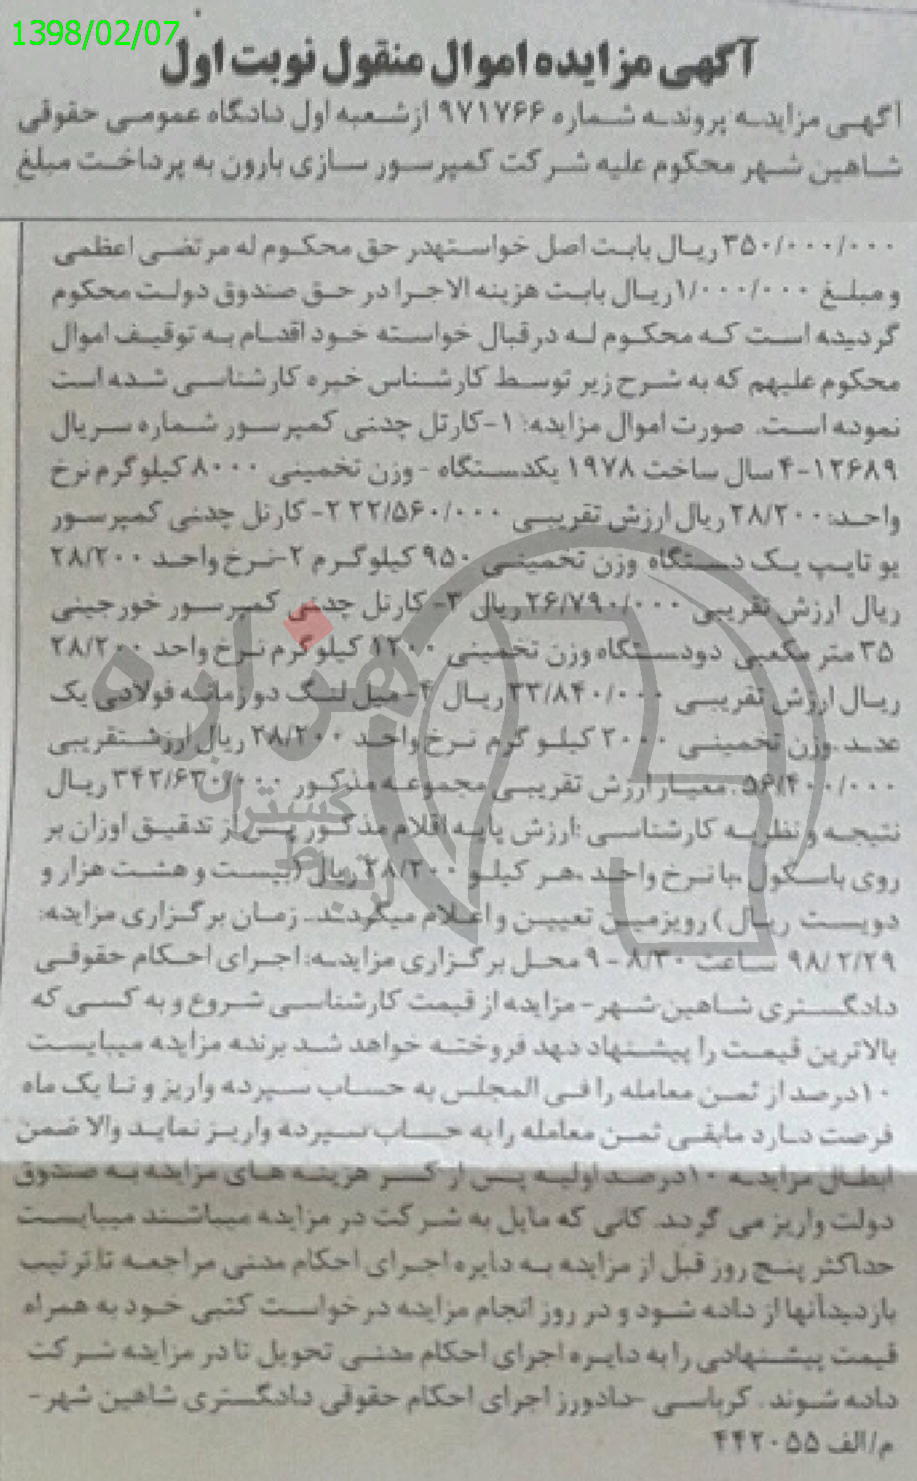 1398/02/07
آگهی مزایده اموال منقول نوبت اول
آگهی مزایده پرونده شماره ۹۷۱۷۶۶ از شعبه اول دادگاه عمومی حقوقی
شاهین شهر محکوم علیه شرکت کمپرسور سازی بارون به پرداخت مبلغ
۳۵۰/۰۰۰/۰۰۰ ریال بابت اصل خواستهدر حق محکوم له مرتضی اعظمی
و مبلغ ۱/۰۰۰/۰۰۰ ریال بابت هزینه الاجرا در حق صندوق دولت محکوم
گردیده است که محکوم له در قبال خواسته خود اقدام به توقیف اموال
محکوم علیهم که به شرح زیر توسط کارشناس خبره کارشناسی شده است
نموده است. صورت اموال مزایده: ۱-کارتل چدنی کمپرسور شماره سریال
۴-۱۲۶۸۹ سال ساخت ۱۹۷۸ یکدستگاه - وزن تخمینی ۸۰۰۰ کیلوگرم نرخ
واحد: ۲۸/۲۰۰ ریال ارزش تقریبی ۲۲/۵۶۰/۰۰۰ ۲- کارتل چدنی کمپرسور
یو تایپ یک دستگاه وزن تخمینی ۹۵۰ کیلوگرم ۲-نرخ واحد ۲۸/۲۰۰
ریال ارزش تقریبی ۲۶/۷۹۰/۰۰۰ ریال ۳- کارتل چدنی کمپرسور خورجینی
۳۵ متر مکعبی دودستگاه وزن تخمینی ۱۲۰۰ کیلو گرم نرخ واحد ۲۸/۲۰۰
ریال ارزش تقریبی ۳۳/۸۴۰/۰۰۰ ریال ۴- میل لنگ دو زمانه فولادی یک
عدد .وزن تخمینی ۲۰۰۰ کیلو گرم نرخ واحد ۲۸/۲۰۰ ریال ارزشتقریبی
۵۶/۴۰۰/۰۰۰ . معیار ارزش تقریبی مجموعه مذکور ۳۴۲/۶۳۰/۰۰۰ ریال
نتیجه و نظریه کارشناسی :ارزش پایه اقلام مذکور پس از تدقیق اوزان بر
روی باسکول ،با نرخ واحد ،هر کیلو ۲۸/۲۰۰ ریال (بیست و هشت هزار و
دویست ریال ) رویزمین تعیین و اعلام میگردند. زمان برگزاری مزایده:
۹۸/۲/۲۹ ساعت ۸/۳۰-۹ محل برگزاری مزایده: اجرای احکام حقوقی
دادگستری شاهین شهر- مزایده از قیمت کارشناسی شروع و به کسی که
بالاترین قیمت را پیشنهاد دهد فروخته خواهد شد برنده مزایده میبایست
۱۰درصد از ثمن معامله را فی المجلس به حساب سپرده واریز و تا یک ماه
فرصت دارد مابقی ثمن معامله را به حساب سپرده واریز نماید والا ضمن
ابطال مزایده ۱۰درصد اولیه پس از کسر هزینه های مزایده به صندوق
دولت واریز می گردد. کانی که مایل به شرکت در مزایده میباشند میبایست
حداکثر پنج روز قبل از مزایده به دایره اجرای احکام مدنی مراجعه تا ترتیب
بازدیدآنها از داده شود و در روز انجام مزایده درخواست کتبی خود به همراه
قیمت پیشنهادی را به دایره اجرای احکام مدنی تحویل تا در مزایده شرکت
داده شوند. کرباسی -دادورز اجرای احکام حقوقی دادگستری شاهین شهر-
م/الف ۴۴۲۰۵۵
هزاره
گسترش